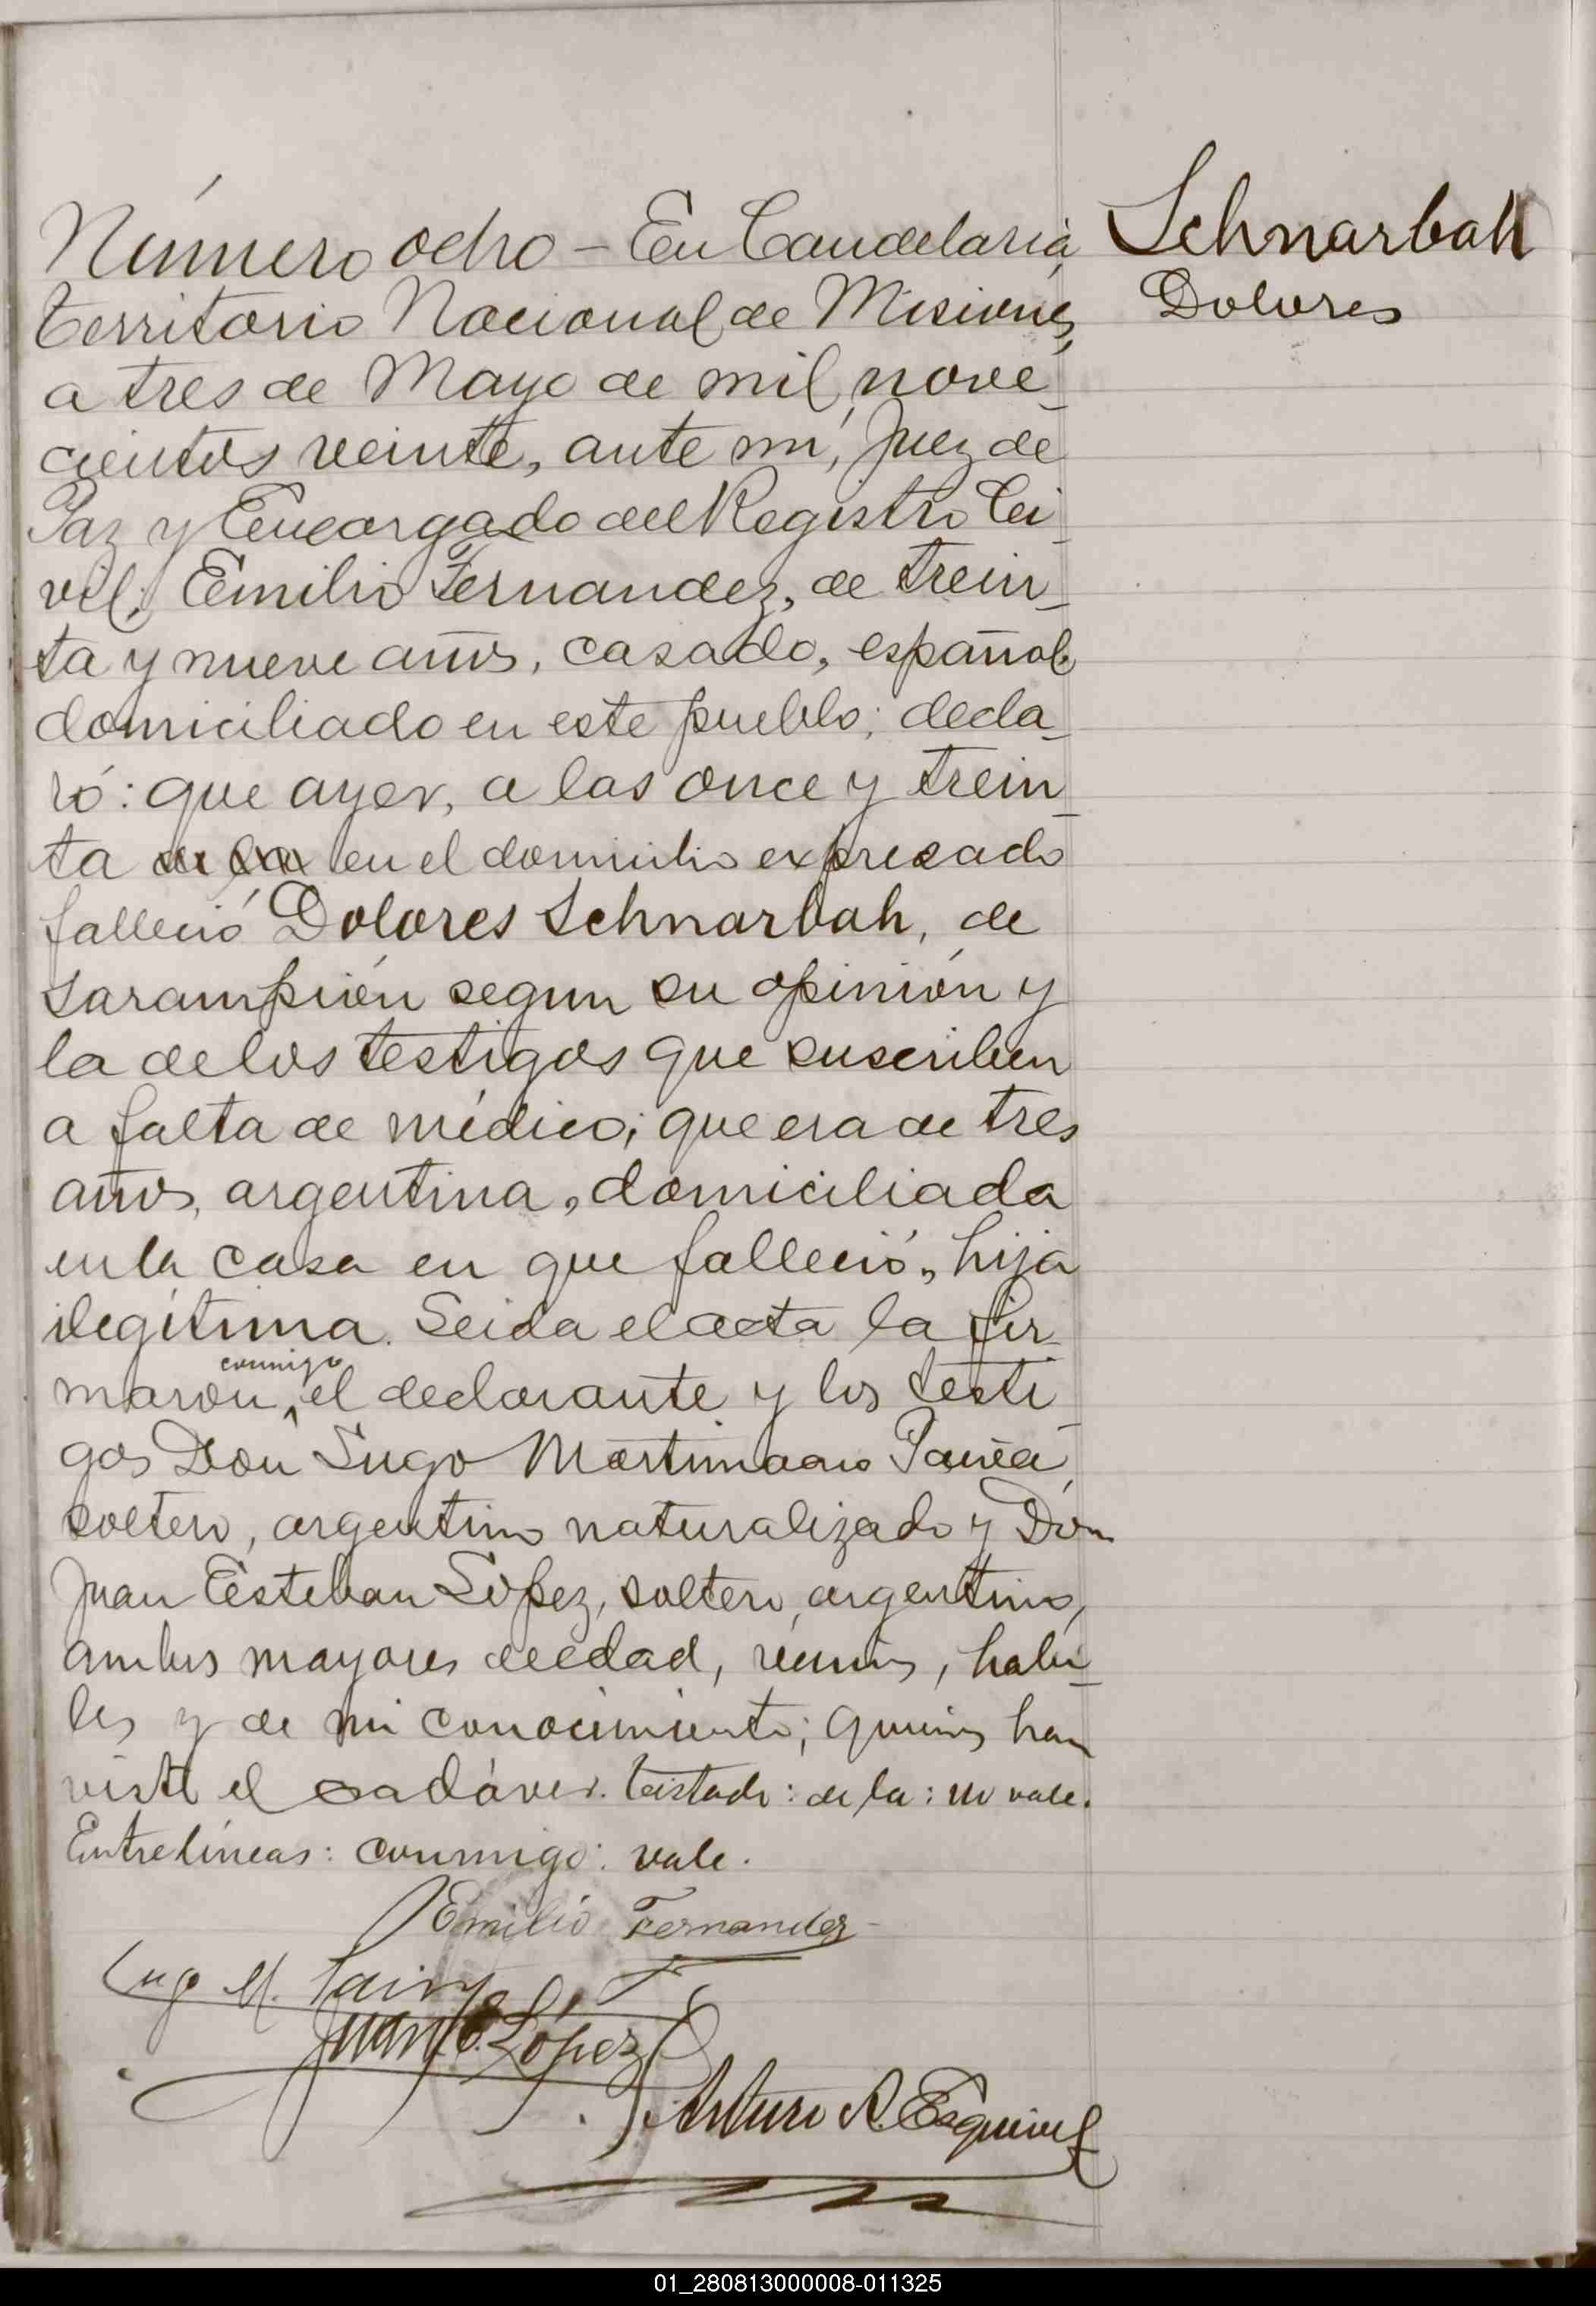 Número ocho – En Candelaria
Schnarbah
Territorio Nacional de Misiones,
Dolores
a tres de Mayo de mil nove-
cientos veinte, ante mí, Juez de
Paz y Encargado del Registro Ci-
vil; Emilio Fernandez, de trein-
ta y nueve años, casado, español
domiciliado en este pueblo; decla-
ró: que ayer, a las once y trein-
ta de la en el domicilio expresado
falleció Dolores Schnarbah, de
sarampión segun su opinión y
la de los testigos que suscriben
a falta de médico; que era de tres
años, argentina, domiciliada
en la casa en que falleció, hija
ilegítima. Leida el acta la fir-
conmigo
maron, el declarante y los testi-
gos Don Lugo
soltero, argentino naturalizado y Don
Juan Esteban López, soltero, argentino,
ambos mayores de edad, vecinos, habi-
les y de mi conocimiento; quienes han
visto el cadáver. Testado: de la: no vale.
Entrelíneas: conmigo: vale.
Emilio Fernandez
Lugo M.
Juan E. López
Arturo A. Esquivel
01_280813000008-011325